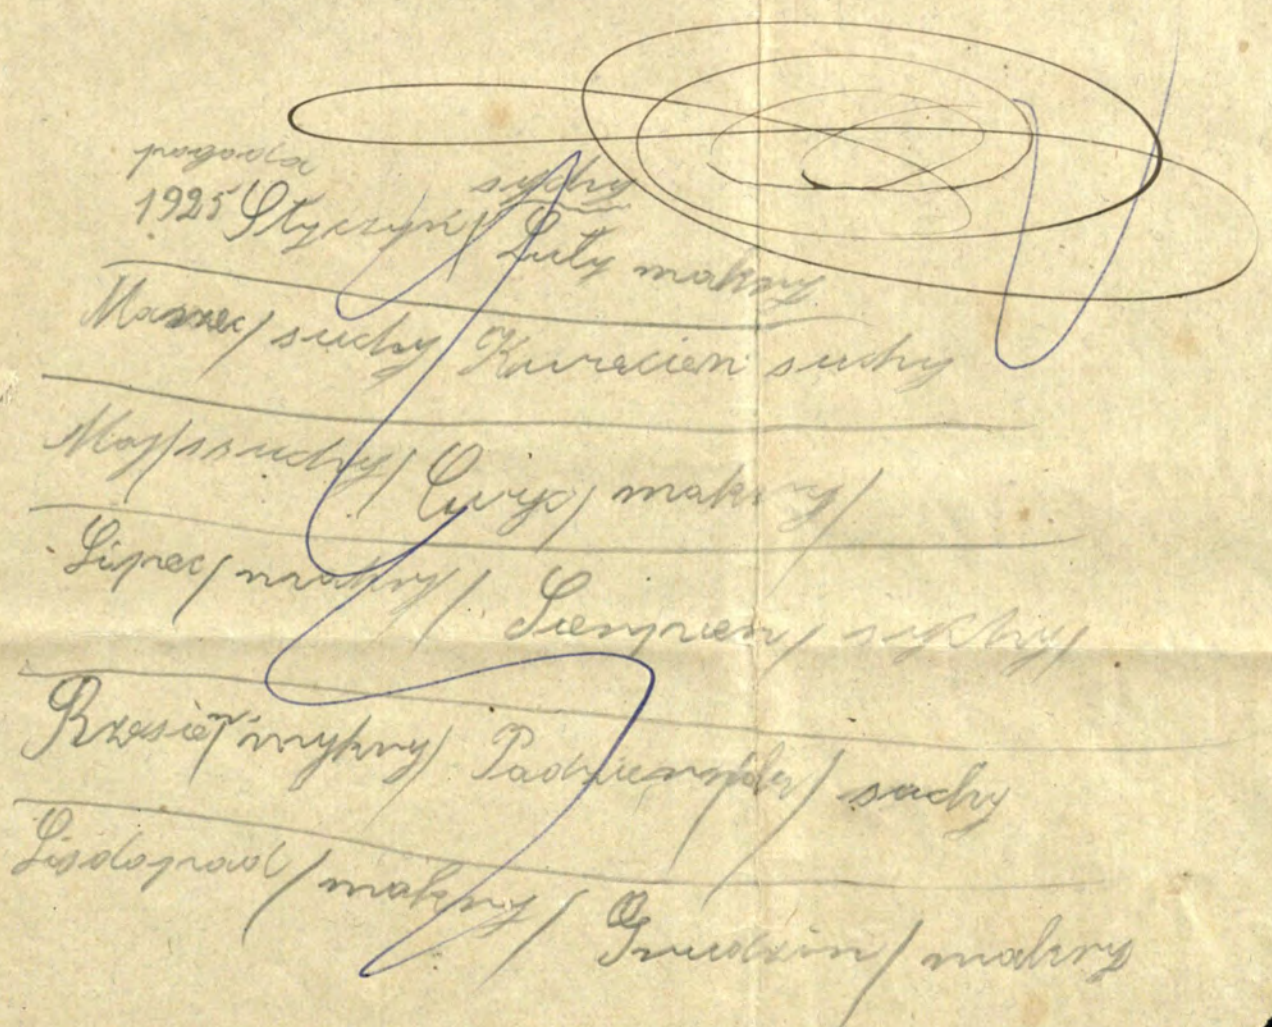 pogoda
1925 Styczyń/ suchy Luty makry
Marzec/ suchy Kwiecien suchy
Maj/ssuchy/ Cwyc/ makry/
Lipec/ makry/ Sienpien/
Rzesień mykry/ Padzienrzik/ suchy
Lisdopad/ makry/ Grudzin/ makry